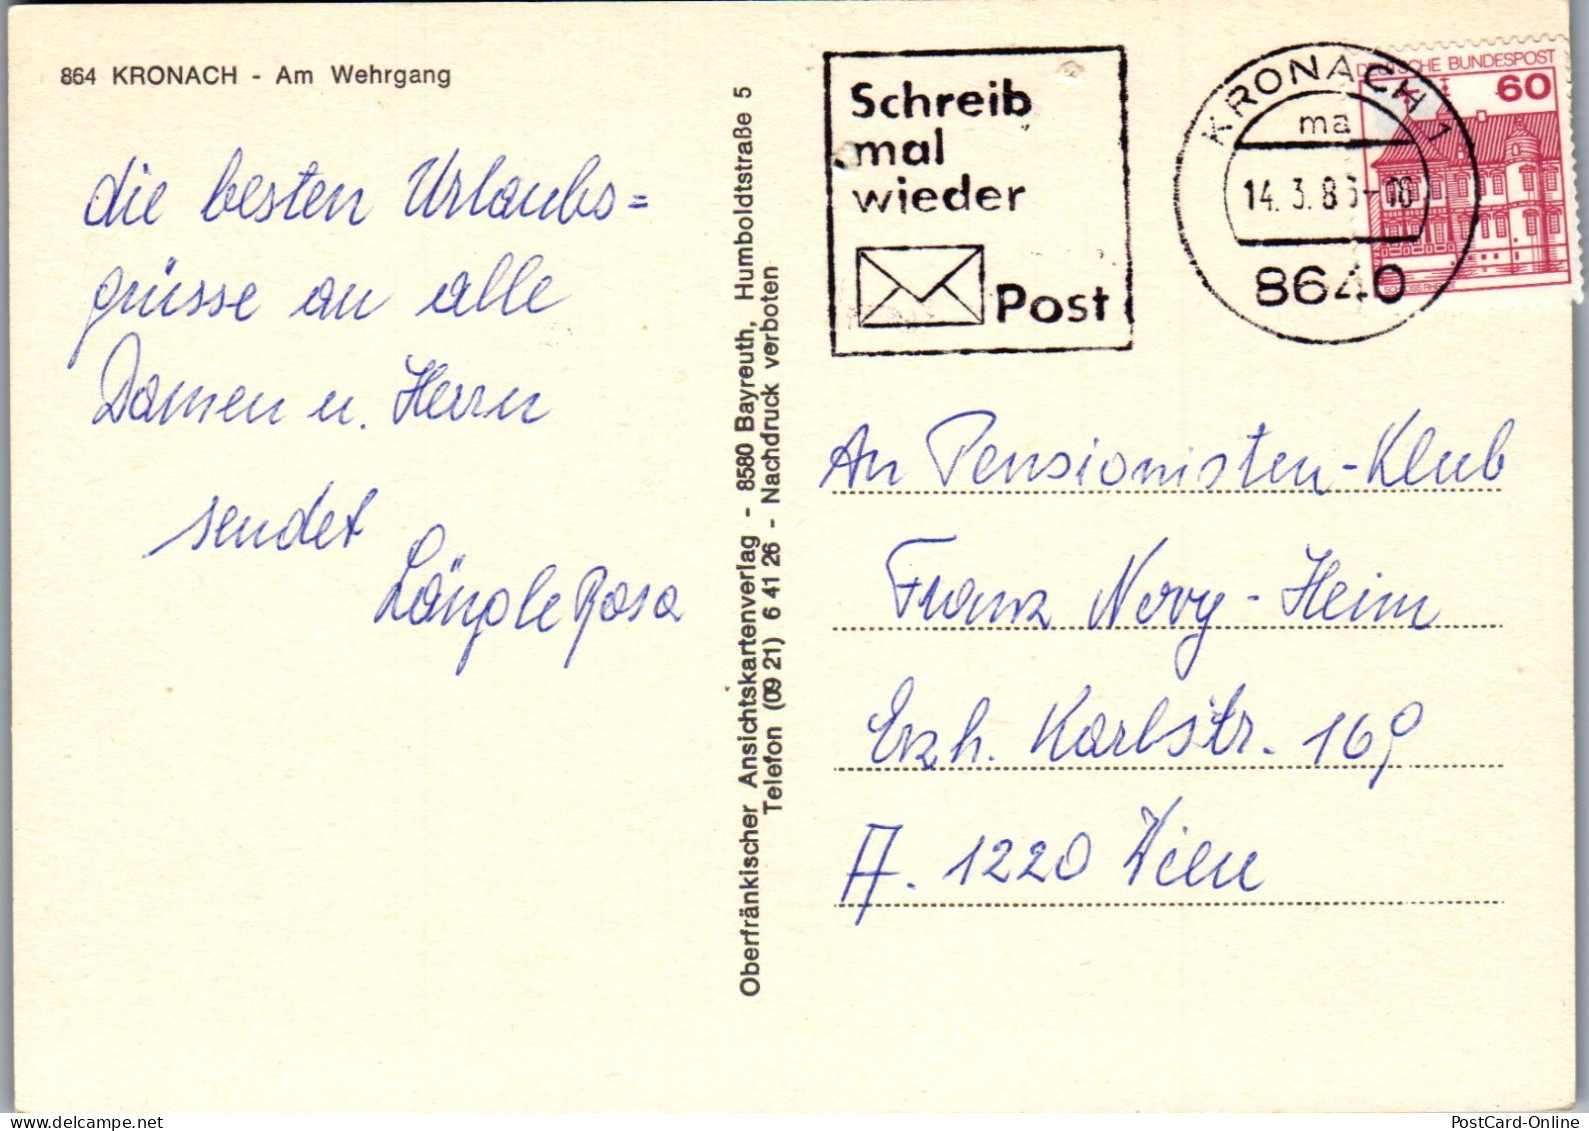 864 KRONACH - Am Wehrgang
die besten Urlaubs=
grüsse an alle
Damen u. Herrn
sendet
Längle Rosa
Oberfränkischer Ansichtskartenverlag - 8580 Bayreuth, Humboldtstraße 5
Telefon (09 21) 6 41 26 - Nachdruck verboten
Schreib
mal
wieder
Post
KRONACH 1
ma
14. 3. 8
8640
DEUTSCHE BUNDESPOST
60
An Pensionisten-Klub
Franz Novy-Heim
Erzh. Karlstr. 169
A. 1220 Wien
PostCard-Online
delcampe.net